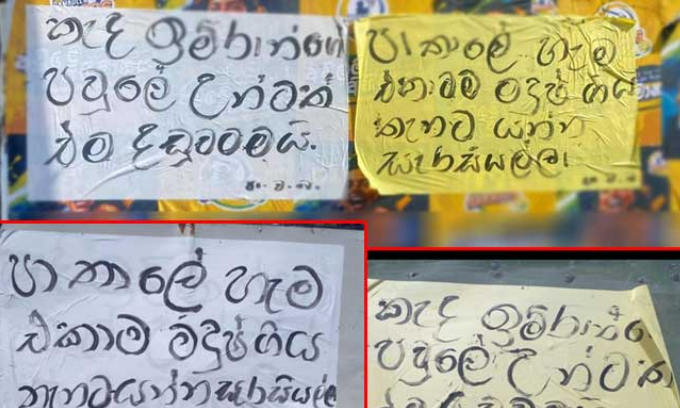 කැද ඉම්රාන්ගේ
පවුලේ උන්ටත්
එම දඬුවමමයි.
පාතාලේ හැම
එකාමම මදුෂ් ගිය
තැනට යන්න
සැරසියල්ලා
පාතාලේ හැම
එකාම මදුෂ් ගිය
තැනටයන්න සැරසියල්ලා
කැද ඉම්රාන්ගෙ
පවුලේ උන්ටත්